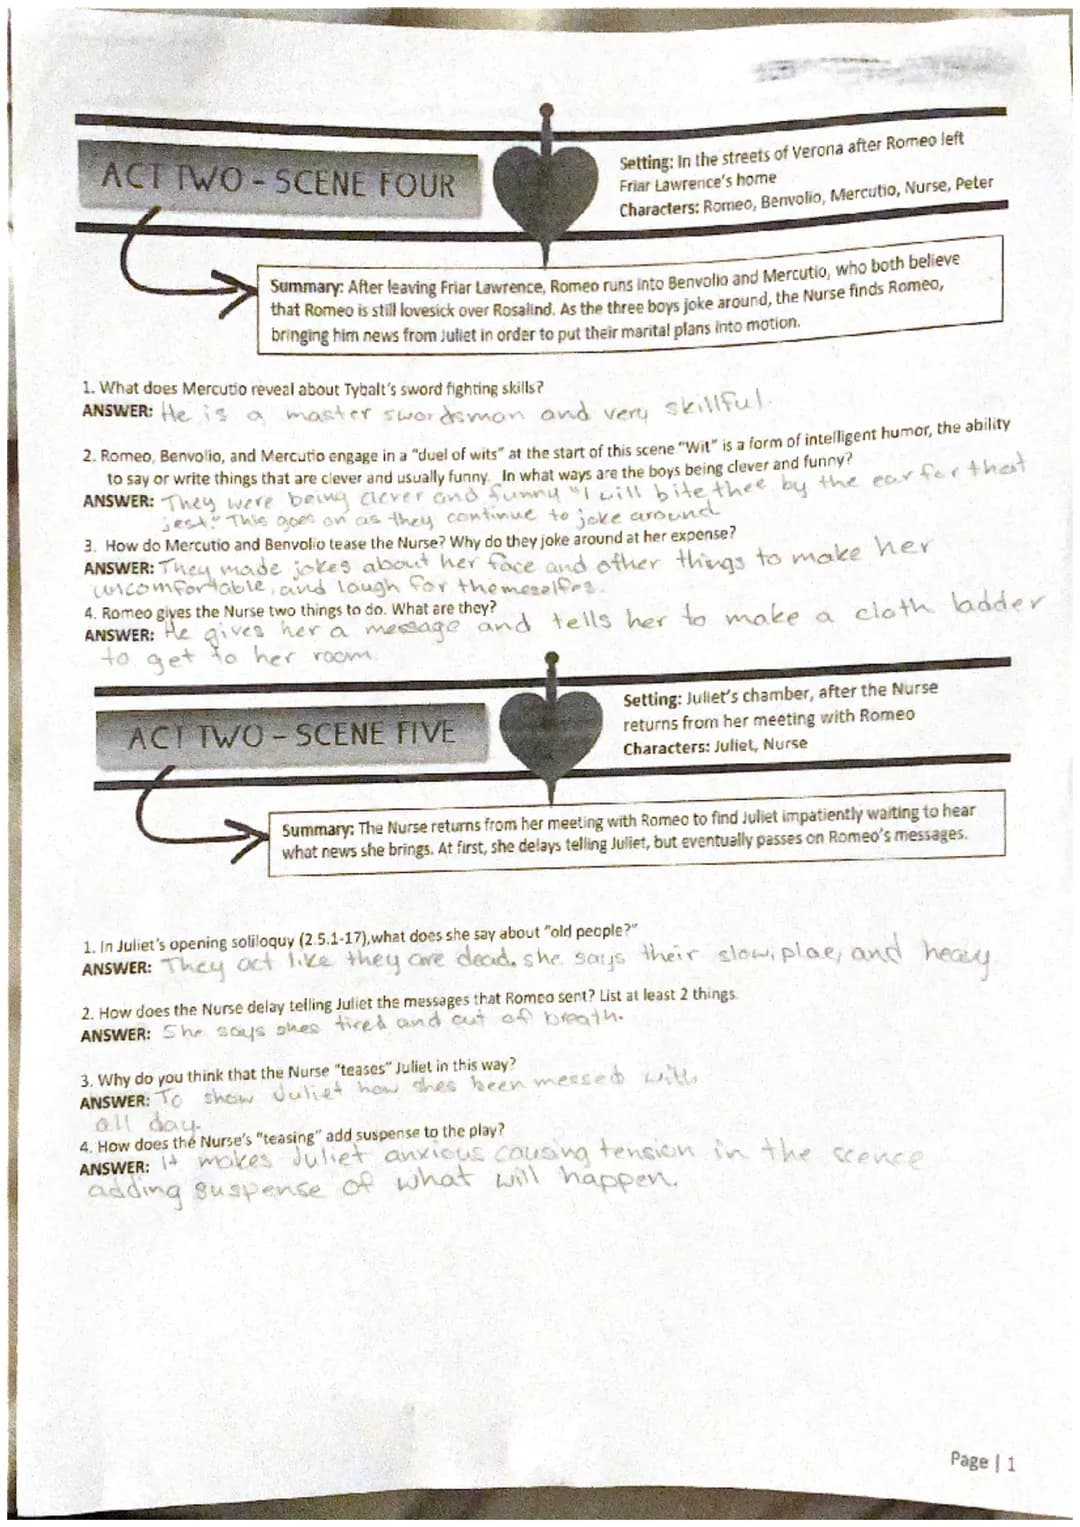 ACT TWO - SCENE FOUR
Setting: In the streets of Verona after Romeo left
Friar Lawrence's home
Characters: Romeo, Benvolio, Mercutio, Nurse, Peter
Summary: After leaving Friar Lawrence, Romeo runs into Benvolio and Mercutio, who both believe
that Romeo is still lovesick over Rosalind. As the three boys joke around, the Nurse finds Romeo,
bringing him news from Juliet in order to put their marital plans into motion.
1. What does Mercutio reveal about Tybalt's sword fighting skills?
ANSWER: He is a master swordsman and very skillful.
2. Romeo, Benvolio, and Mercutio engage in a "duel of wits" at the start of this scene "Wit" is a form of intelligent humor, the ability
to say or write things that are clever and usually funny. In what ways are the boys being clever and funny?
ANSWER: They were being clever and funny "I will bite thee by the ear for that
jest." This goes on as they continue to joke around
3. How do Mercutio and Benvolio tease the Nurse? Why do they joke around at her expense?
ANSWER: They made jokes about her face and other things to make her
uncomfortable, and laugh for themeselfes.
4. Romeo gives the Nurse two things to do. What are they?
ANSWER: He gives her a message and tells her to make a cloth ladder
to get to her room.
ACT TWO - SCENE FIVE
Setting: Juliet's chamber, after the Nurse
returns from her meeting with Romeo
Characters: Juliet, Nurse
Summary: The Nurse returns from her meeting with Romeo to find Juliet impatiently waiting to hear
what news she brings. At first, she delays telling Juliet, but eventually passes on Romeo's messages.
1. In Juliet's opening soliloquy (2.5.1-17),what does she say about "old people?"
ANSWER: They act like they are dead. she says their slow, plae, and heavy
2. How does the Nurse delay telling Juliet the messages that Romeo sent? List at least 2 things.
ANSWER: She says shes tired and out of breath.
3. Why do you think that the Nurse "teases" Juliet in this way?
ANSWER: To show Juliet how shes been messed with
all day.
4. How does the Nurse's "teasing" add suspense to the play?
ANSWER: It makes Juliet anxious causing tension in the scence
adding suspense of what will happen.
Page | 1